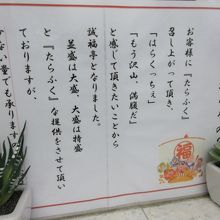 お客様に『たらふく』
召し上がって頂き、
「はらくっちぇ」
「もう沢山、満腹だ」
と感じて頂きたいことから
誠福亭となりました。
並盛は大盛、大盛は特盛
と『たらふく』な提供をさせて頂い
ておりますが、
ない量でも承ります
福